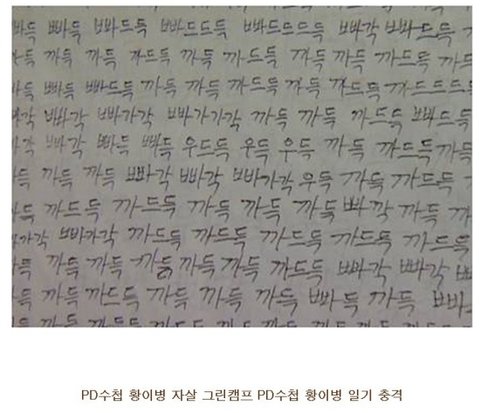 빠득 빠득 빠드득 빠드득 빠드드드득 빠각 빠빠드득
까득 까득 까득 까드득 까득 까드득 까득 까득 까드득
빠득 빠득 빠드드득 까득 까득 까드득 까득 까드드드득
빠각 빠가각 빠가가각 까득 까득 까드득 빠드득
빠각 빠득 빠득 우드득 우득 우득 까득 까드득 까득
까득 까득 빠각 빠각 빠가각 우득 까득 까드득
까드득 까드득 까득 까득 까득 빠각 까득 까
가각 빠카각 까드득 까득 까드득 까드득 까드득
까득 까득 까득 까득 까득 까드득 빠각 빠각
까득 까드득 까득 까득 까득 빠득 까득 빠
PD수첩 황이병 자살 그린캠프 PD수첩 황이병 일기 충격